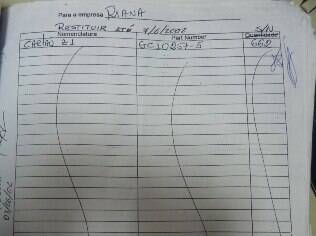 Para a empresa RIANA
RESTITUIR ATÉ 9/6/2002 S/N
Nomenclatura Part Number Quantidade
CARTÃO Z1 GC10257-5 662